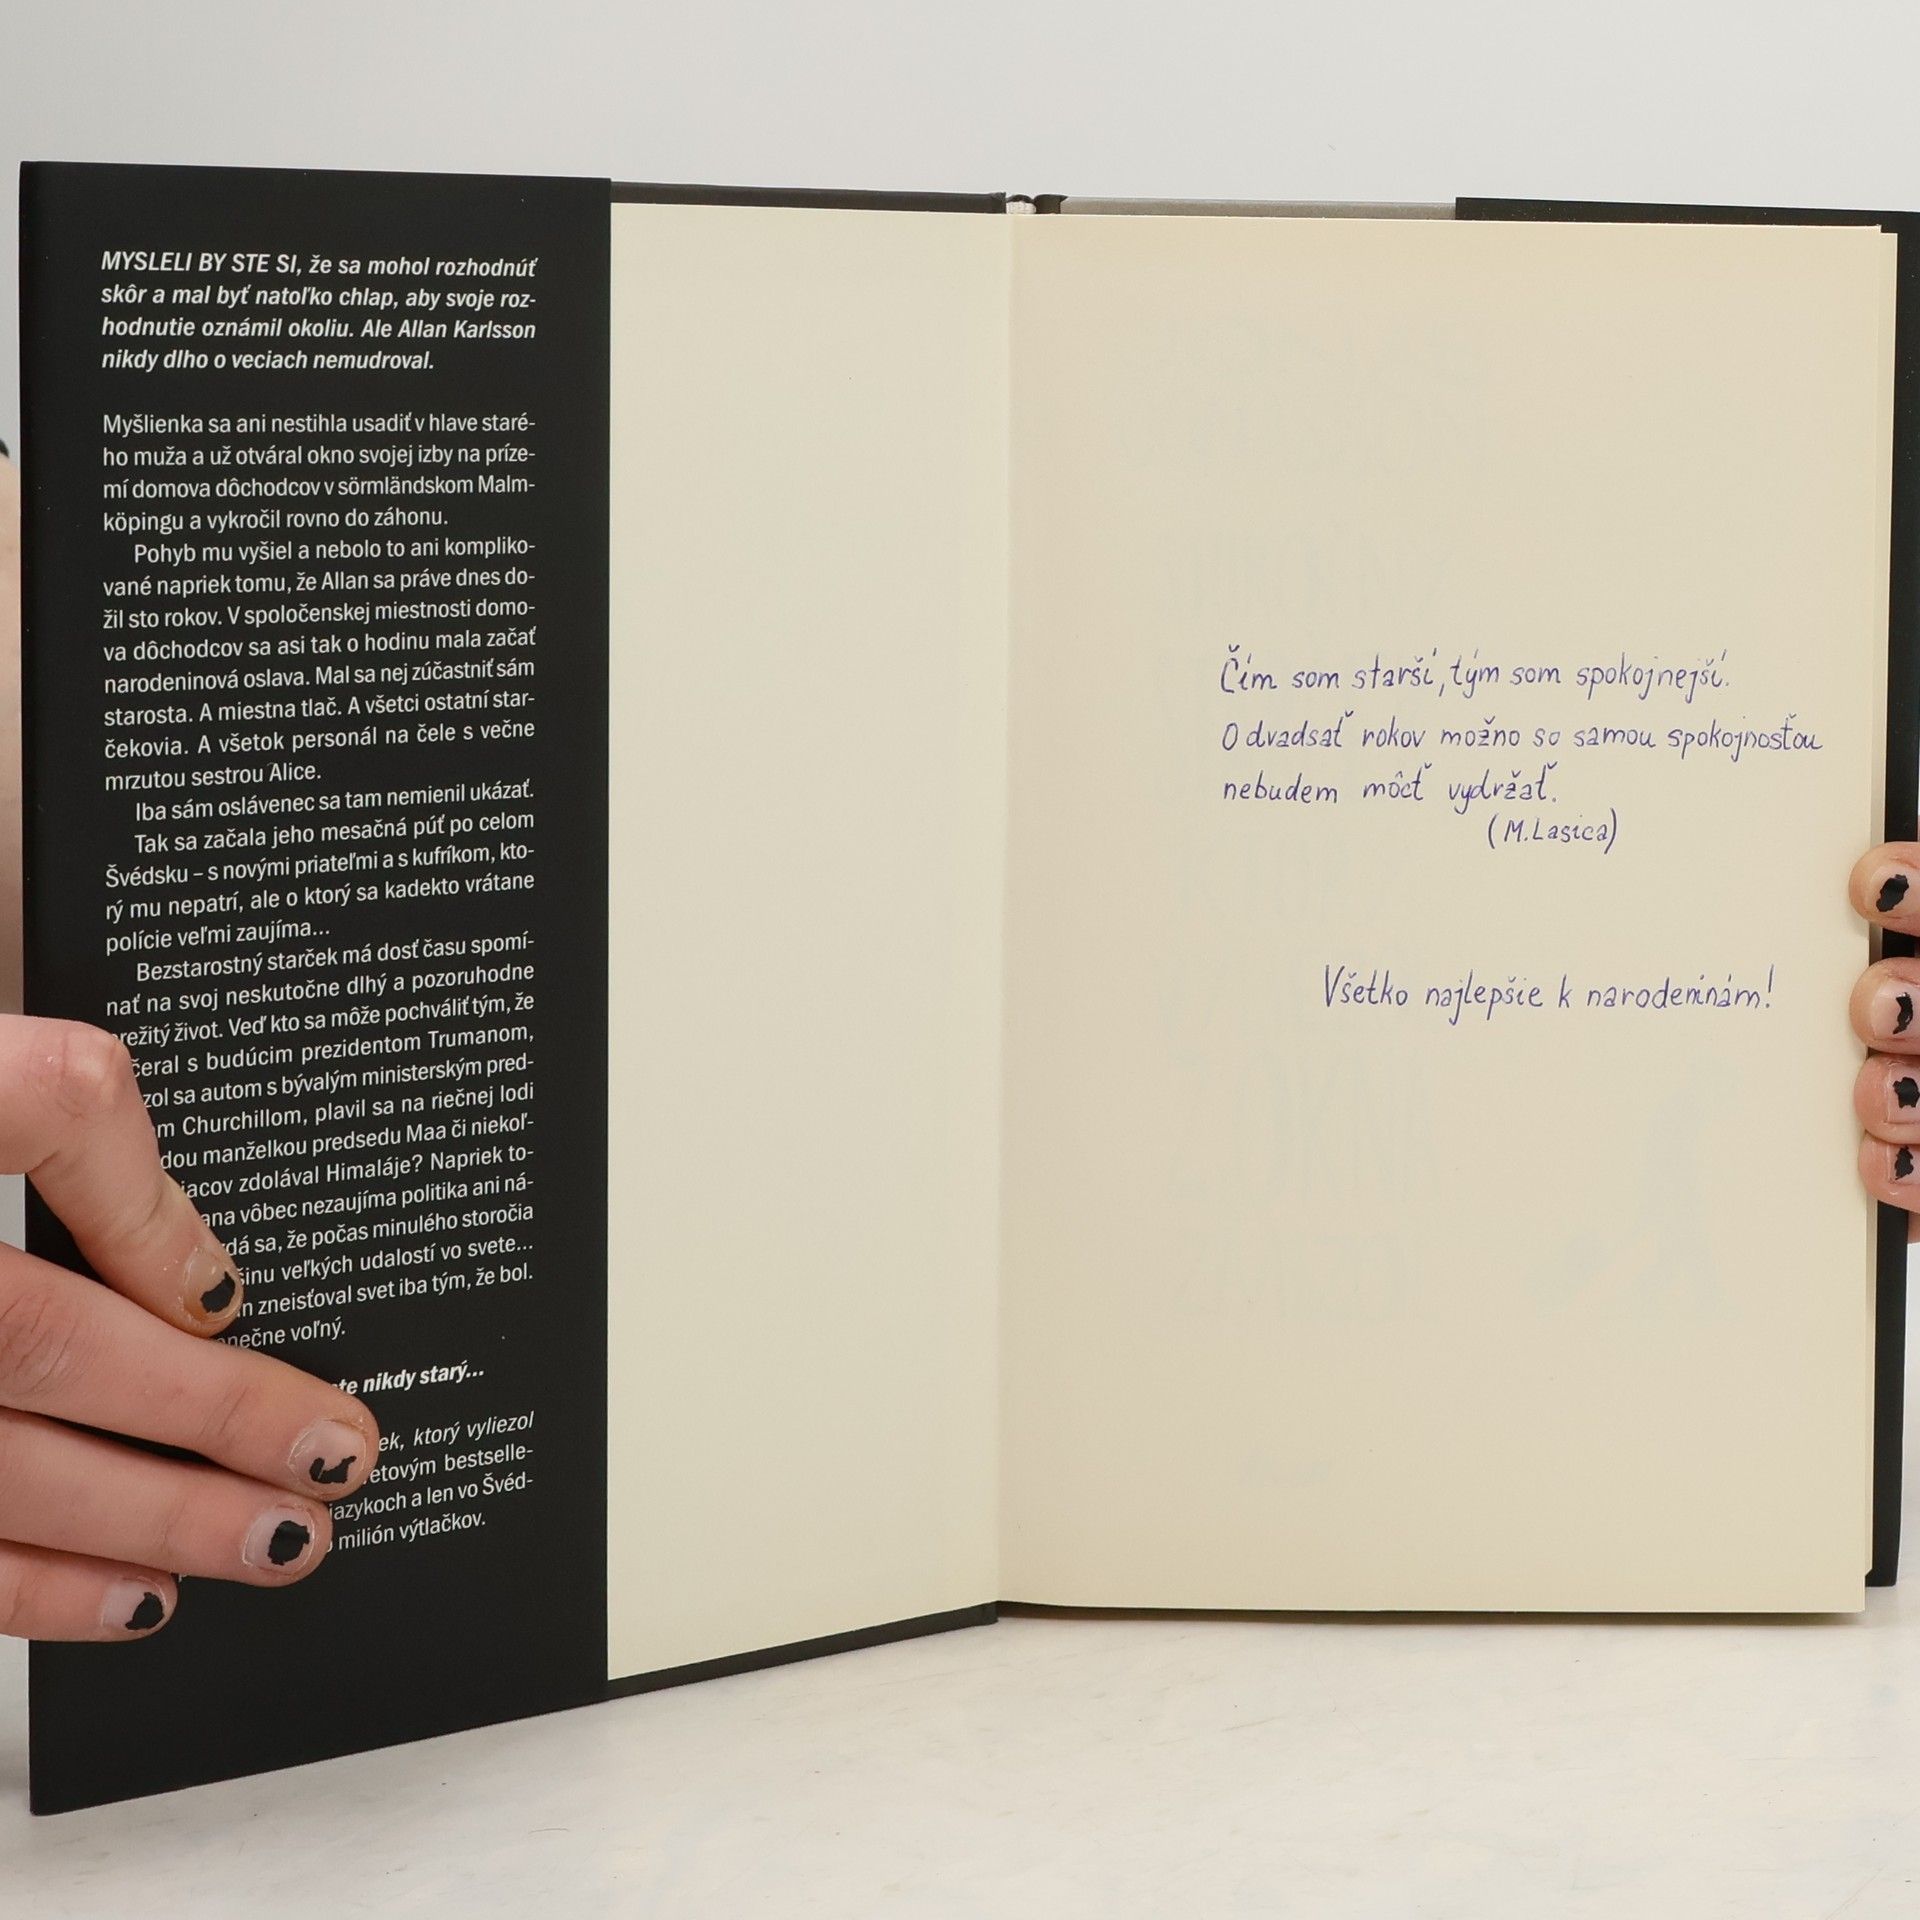 MYSLELI BY STE SI, že sa mohol rozhodnúť
skôr a mal byť natoľko chlap, aby svoje roz-
hodnutie oznámil okoliu. Ale Allan Karlsson
nikdy dlho o veciach nemudroval.
Myšlienka sa ani nestihla usadiť v hlave staré-
ho muža a už otváral okno svojej izby na príze-
mí domova dôchodcov v sörmländskom Malm-
köpingu a vykročil rovno do záhonu.
Pohyb mu vyšiel a nebolo to ani kompliko-
vané napriek tomu, že Allan sa práve dnes do-
žil sto rokov. V spoločenskej miestnosti domo-
va dôchodcov sa asi tak o hodinu mala začať
narodeninová oslava. Mal sa nej zúčastniť sám
starosta. A miestna tlač. A všetci ostatní star-
čekovia. A všetok personál na čele s večne
mrzutou sestrou Alice.
Iba sám oslávenec sa tam nemienil ukázať.
Tak sa začala jeho mesačná púť po celom
Švédsku – s novými priateľmi a s kufríkom, kto-
rý mu nepatrí, ale o ktorý sa kadekto vrátane
polície veľmi zaujíma...
Bezstarostný starček má dosť času spomí-
nať na svoj neskutočne dlhý a pozoruhodne
život. Veď kto sa môže pochváliť tým, že
s budúcim prezidentom Trumanom,
sa autom s bývalým ministerským pred-
Churchillom, plavil sa na riečnej lodi
manželkou predsedu Maa či niekoľ-
zdolával Himaláje? Napriek to-
vôbec nezaujíma politika ani ná-
sa, že počas minulého storočia
veľkých udalostí vo svete...
zneisťoval svet iba tým, že bol.
voľný.
nikdy starý...
ktorý vyliezol
bestselle-
a len vo Švéd-
milión výtlačkov.
Čím som starší, tým som spokojnejší.
O dvadsať rokov možno so samou spokojnosťou
nebudem môcť vydržať.
(M. Lasica)
Všetko najlepšie k narodeninám!